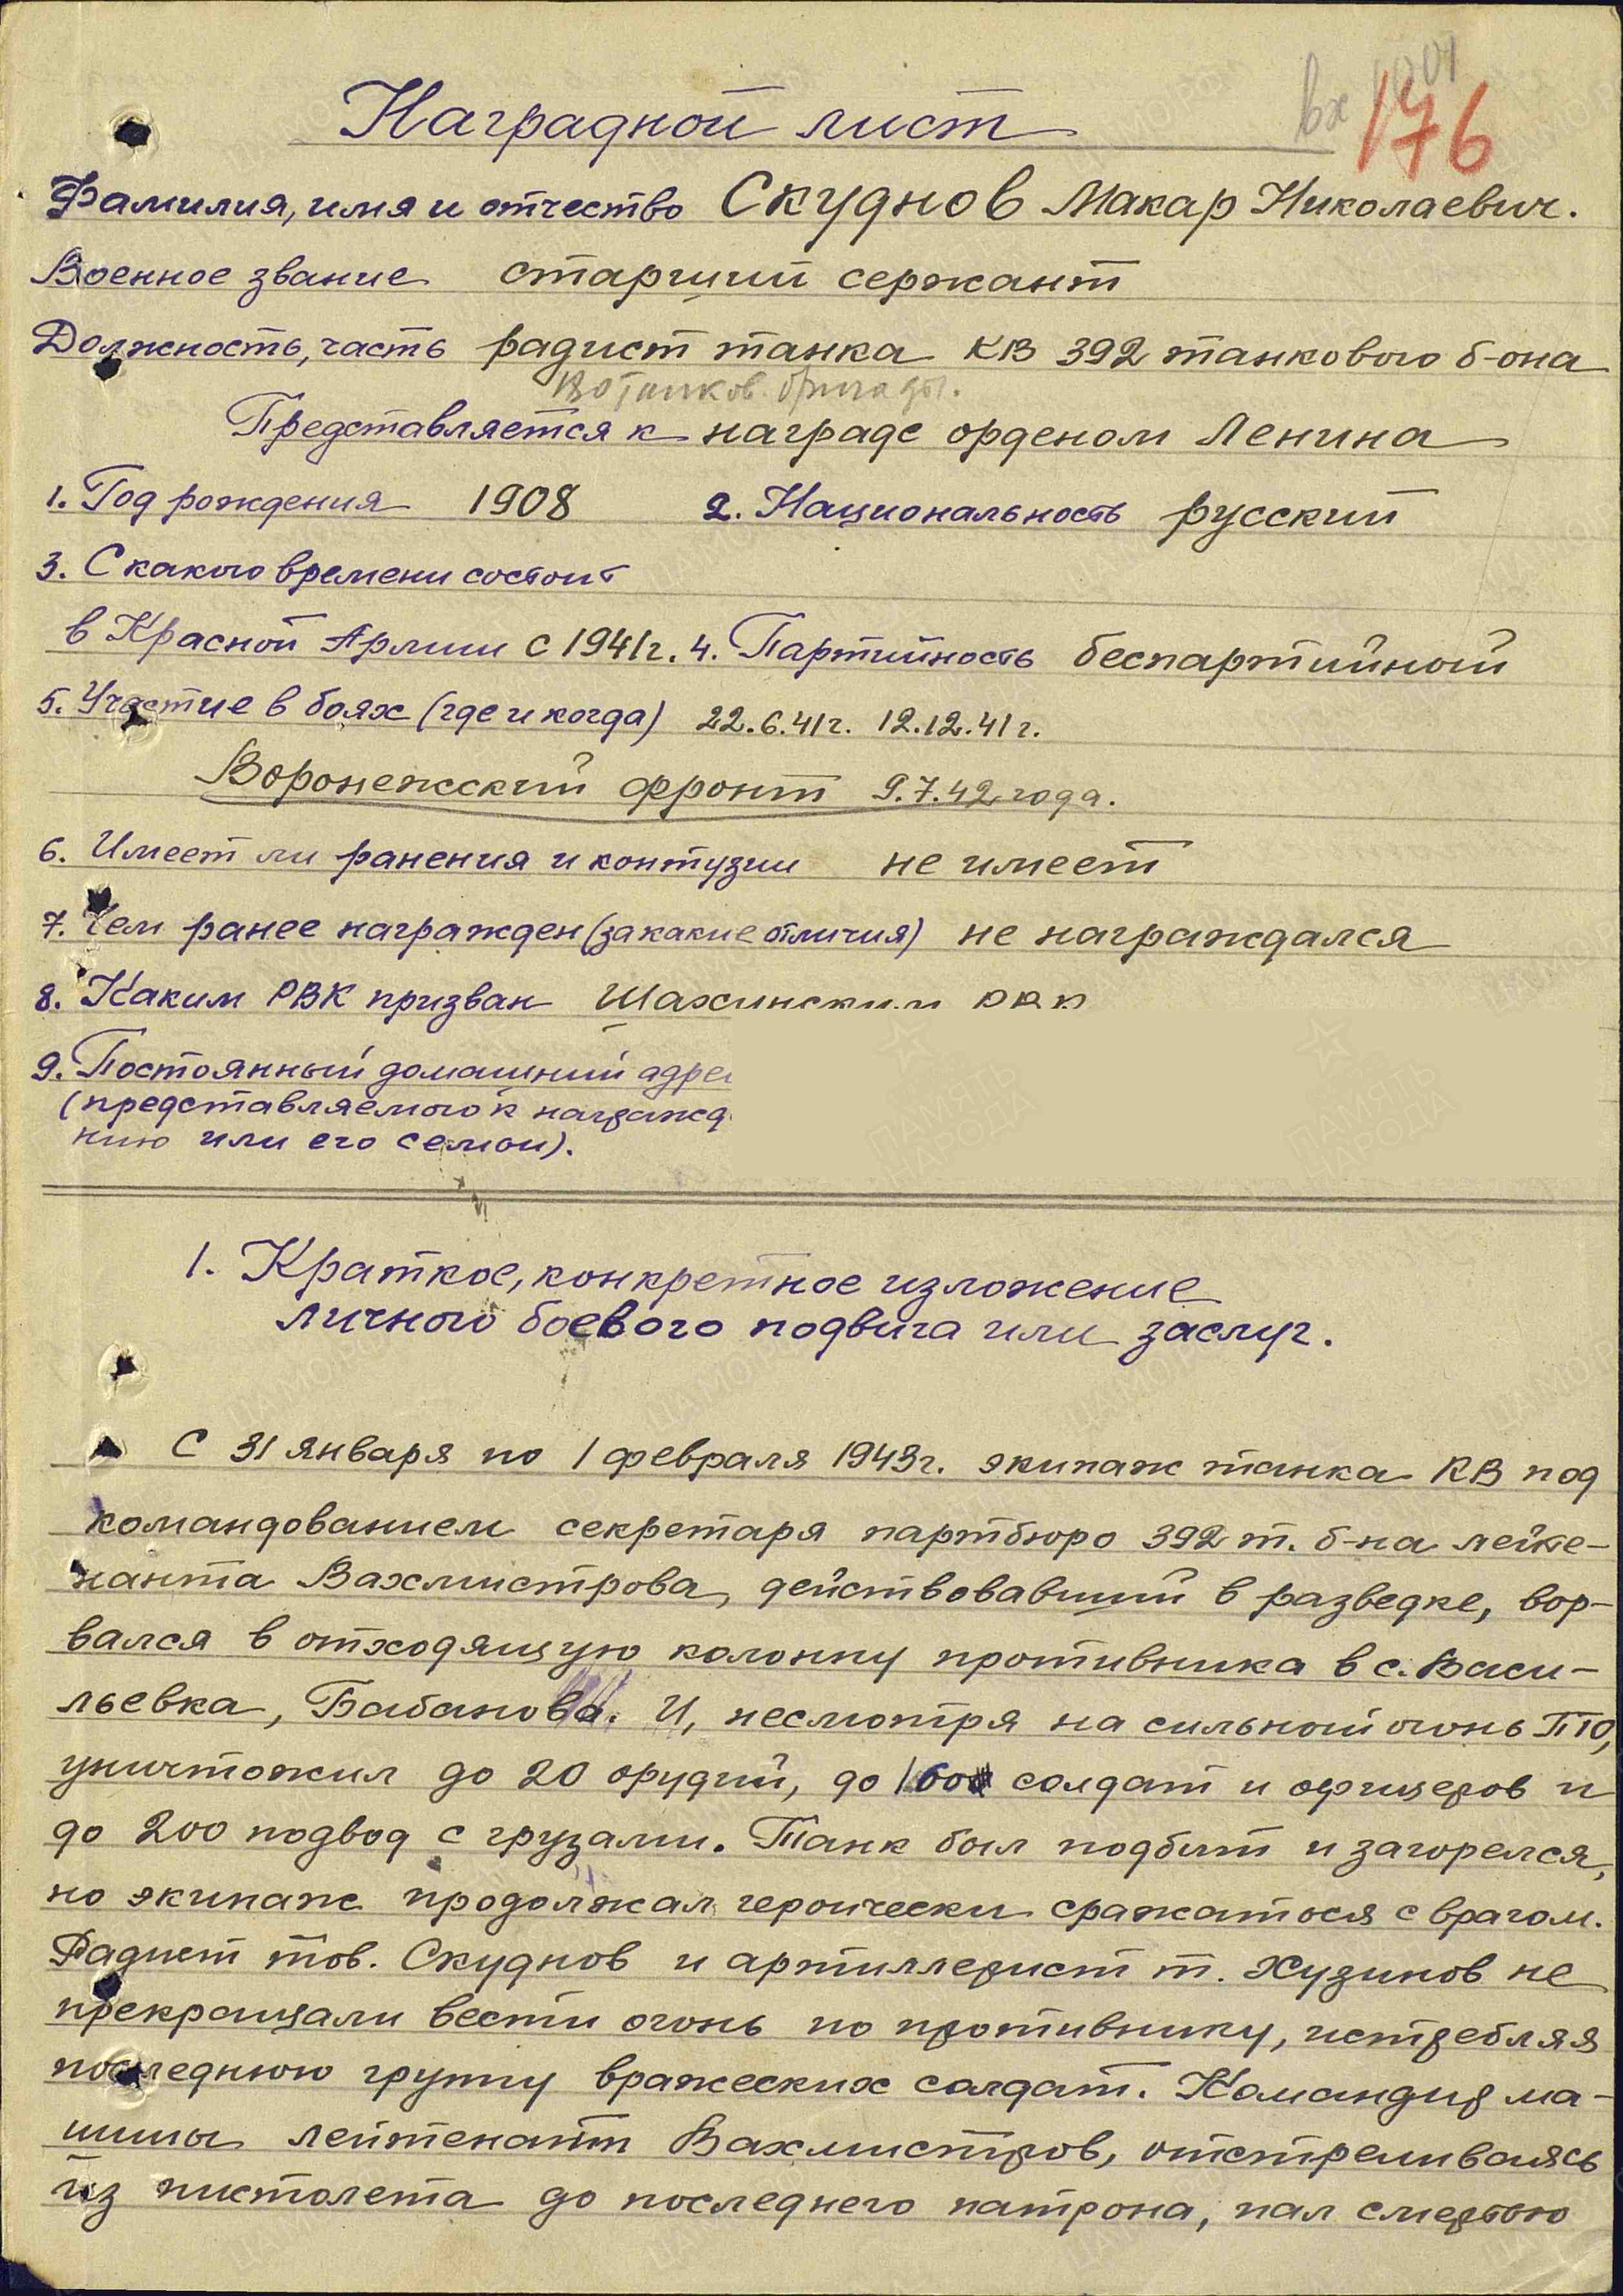 вх
176
Наградной лист
Фамилия, имя и отчество Скуднов Макар Николаевич.
Военное звание старший сержант
Должность, часть радист танка КВ 392 танкового б-она
танков. бригады.
Представляется к награде орденом Ленина
1. Год рождения 1908 2. Национальность русский
3. С какого времени состоит
в Красной Армии с 1941г. 4. Партийность беспартийной
5. Участие в боях (где и когда) 22.6.41г. 12.12.41г.
Воронежский фронт 9.7.42 года.
6. Имеет ли ранения и контузии не имеет
7. Чем ранее награжден (за какие отличия) не награждался
8. Каким РВК призван Шахинским РВК
9. Постоянный домашний адрес
(представляемого к награжд
нию или его семьи).
1. Краткое, конкретное изложение
личного боевого подвига или заслуг.
С 31 января по 1 февраля 1943г. экипаж танка КВ под
командованием секретаря партбюро 392 т. б-на лейте-
нанта Вахмистрова, действовавший в разведке, вор-
вался в отходящую колонну противника в с. Васи-
льевка, Бабаново. И, несмотря на сильный огонь ПТО,
уничтожил до 20 орудий, до солдат и офицеров и
до 200 подвод с грузами. Танк был подбит и загорелся,
но экипаж продолжал героически сражаться с врагом.
Радист тов. Скуднов и артиллерист т. Хузинов не
прекращали вести огонь по противнику, истребляя
последнюю группу вражеских солдат. Командир ма-
шины лейтенант Вахмистров, отстреливаясь
из пистолета до последнего патрона, пал смертью